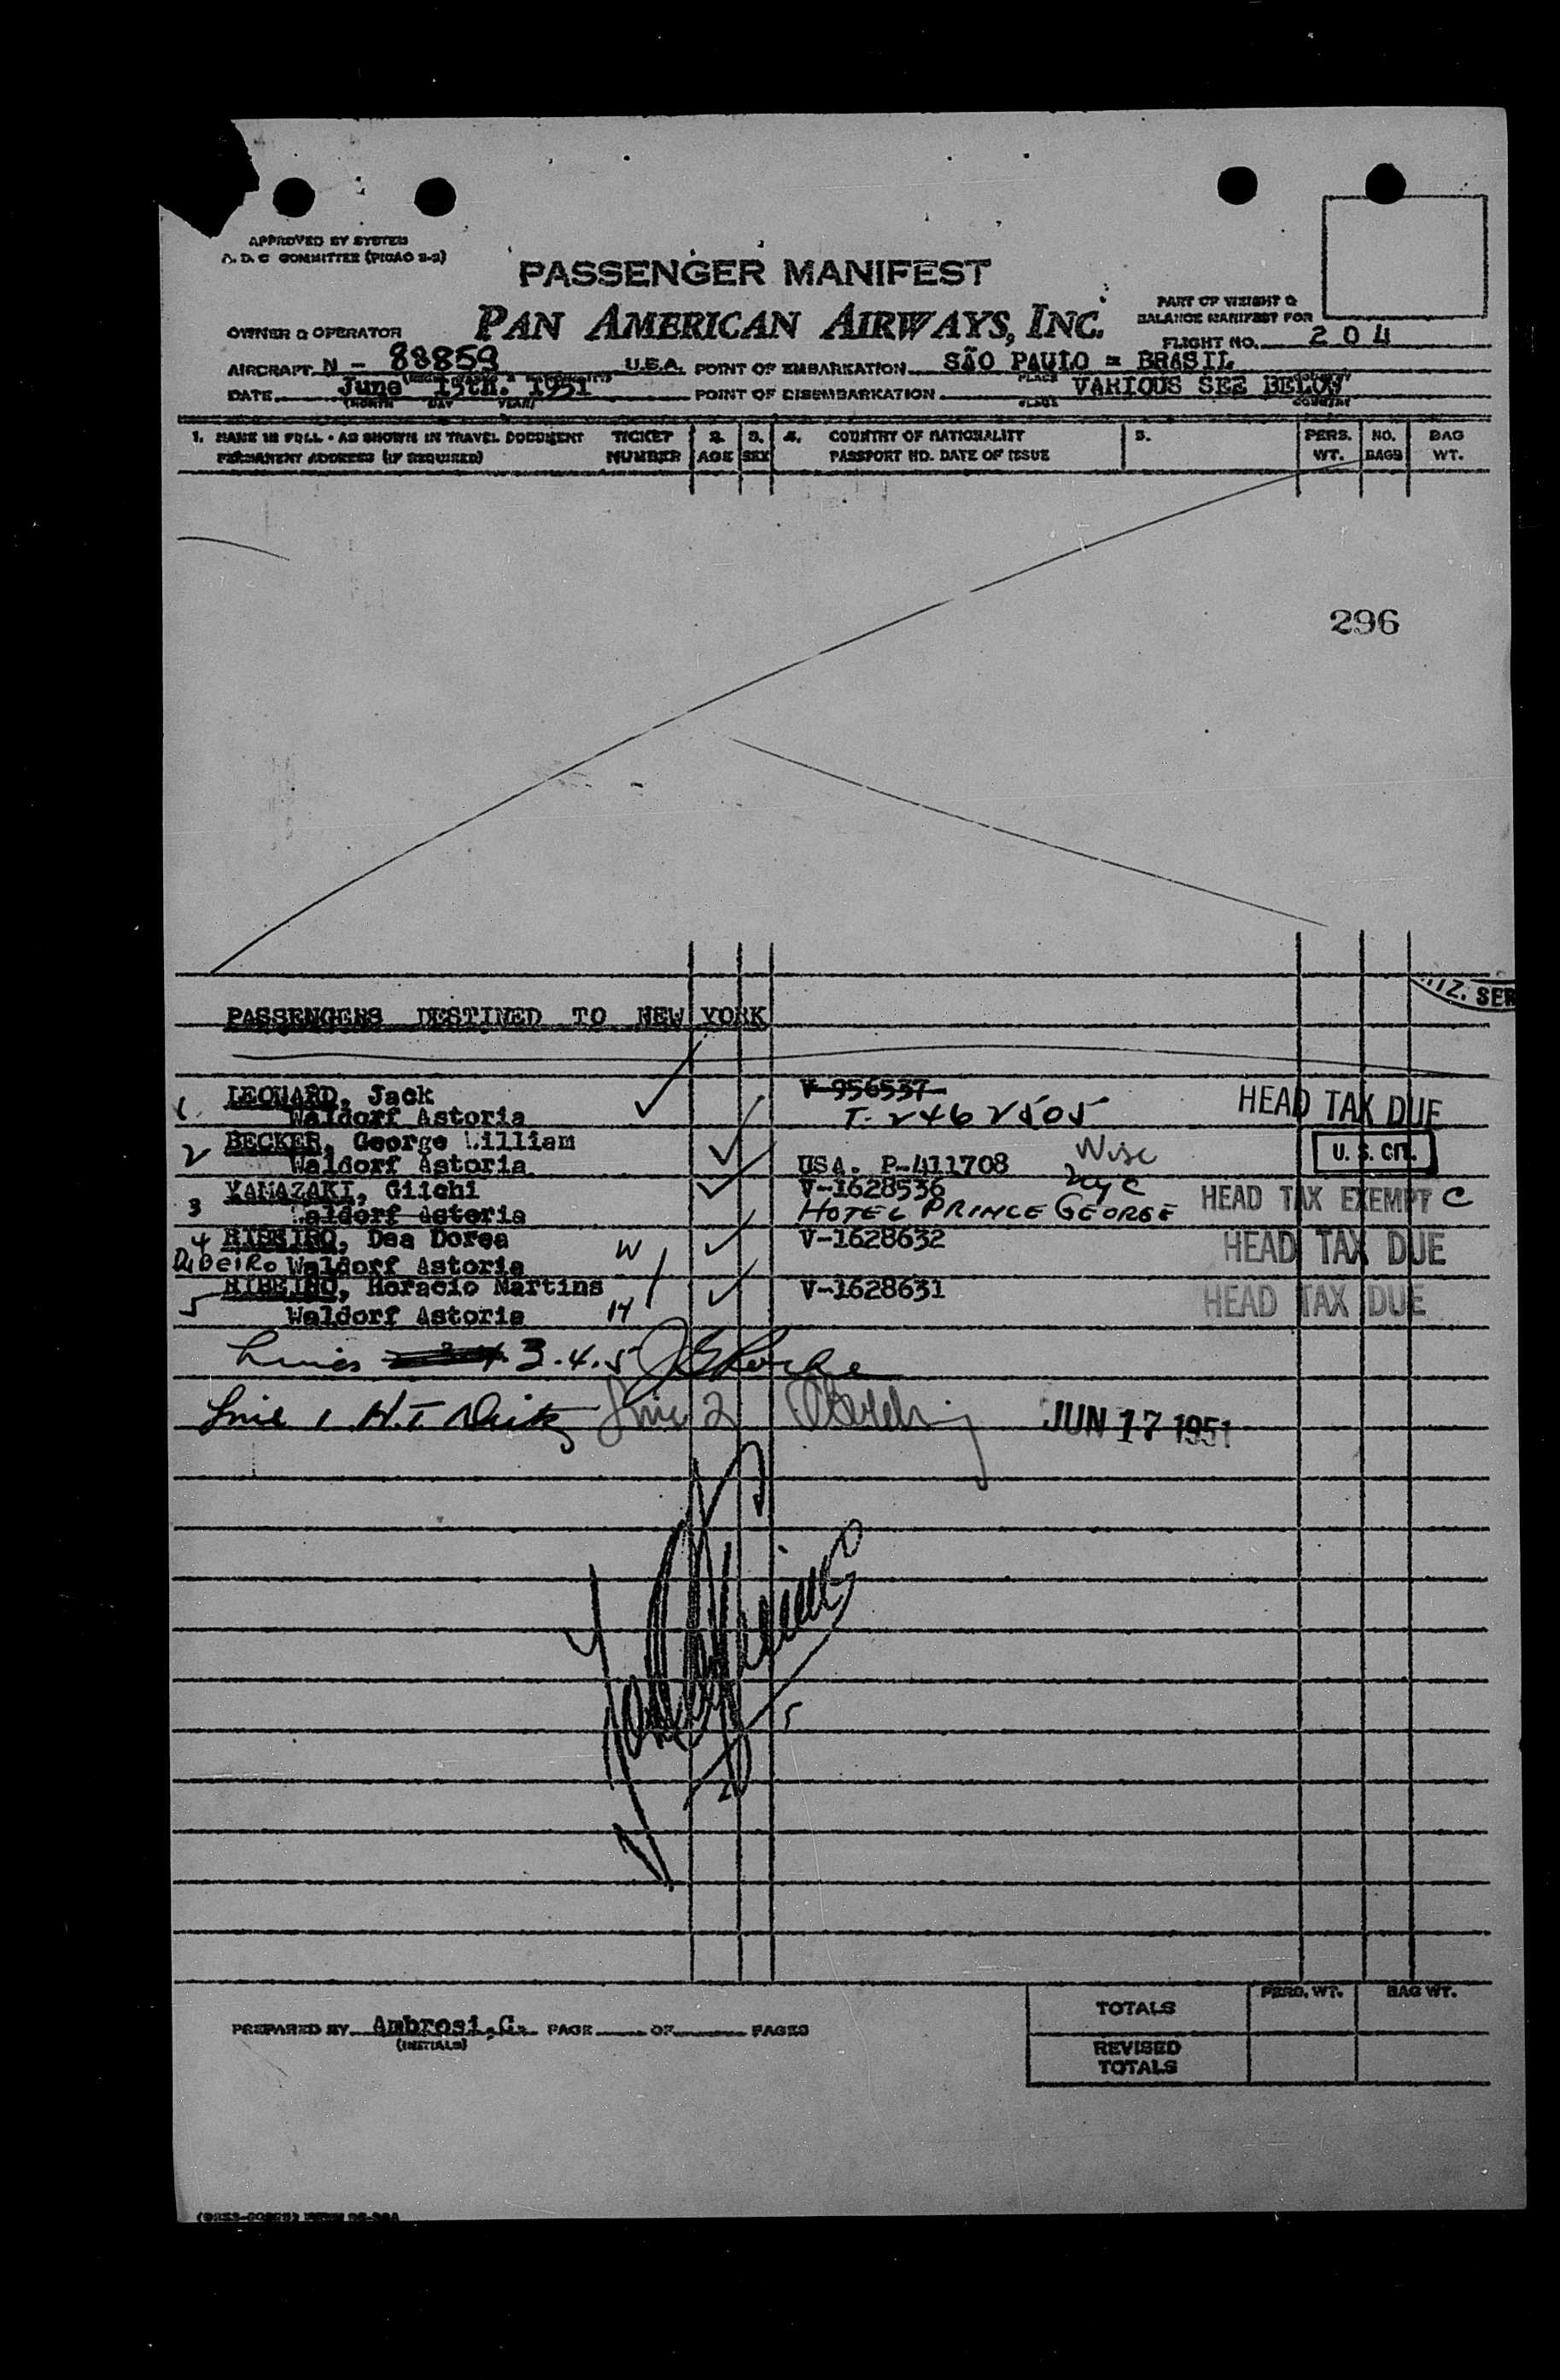 APPROVED BY SYSTEM
A. D. C COMMITTEE (PICAO 2-2)
PASSENGER MANIFEST
PAN AMERICAN AIRWAYS, INC.
PART OF WEIGHT &
BALANCE MANIFEST FOR
OWNER & OPERATOR
FLIGHT NO. 204
AIRCRAFT N - 88859 U.S.A. POINT OF EMBARKATION SÃO PAULO = BRASIL
PLACE COUNTRY
DATE June 15th. 1951 POINT OF DISEMBARKATION VARIOUS SEE BELOW
(MONTH DAY YEAR) PLACE COUNTRY
1. NAME IN FULL - AS SHOWN IN TRAVEL DOCUMENT TICKET 2. 3. 4. COUNTRY OF NATIONALITY 5. PERS. NO. BAG
PERMANENT ADDRESS (IF REQUIRED) NUMBER AGE SEX PASSPORT NO. DATE OF ISSUE WT. BAGS WT.
296
IZ. SER
PASSENGERS DESTINED TO NEW YORK
LEONARD, Jack V-956537
1 Waldorf Astoria T-2462505 HEAD TAX DUE
BECKER, George William Wisc
2 Waldorf Astoria USA. P-411708 U. S. CIT.
YAMAZAKI, Giichi V-1628536 nyc
3 Waldorf Astoria HOTEL PRINCE GEORGE HEAD TAX EXEMPT C
4 RIBEIRO, Dea Dorea W V-1628632 HEAD TAX DUE
RibeiRo Waldorf Astoria
RIBEIRO, Horacio Martins V-1628631 HEAD TAX DUE
5 Waldorf Astoria H
Lines 3.4.5
Line 1 H.T. Line 2 JUN 17 1951
PREPARED BY Ambrosi,C. PAGE OF PAGES
(INITIALS)
PERS. WT. BAG WT.
TOTALS
REVISED
TOTALS